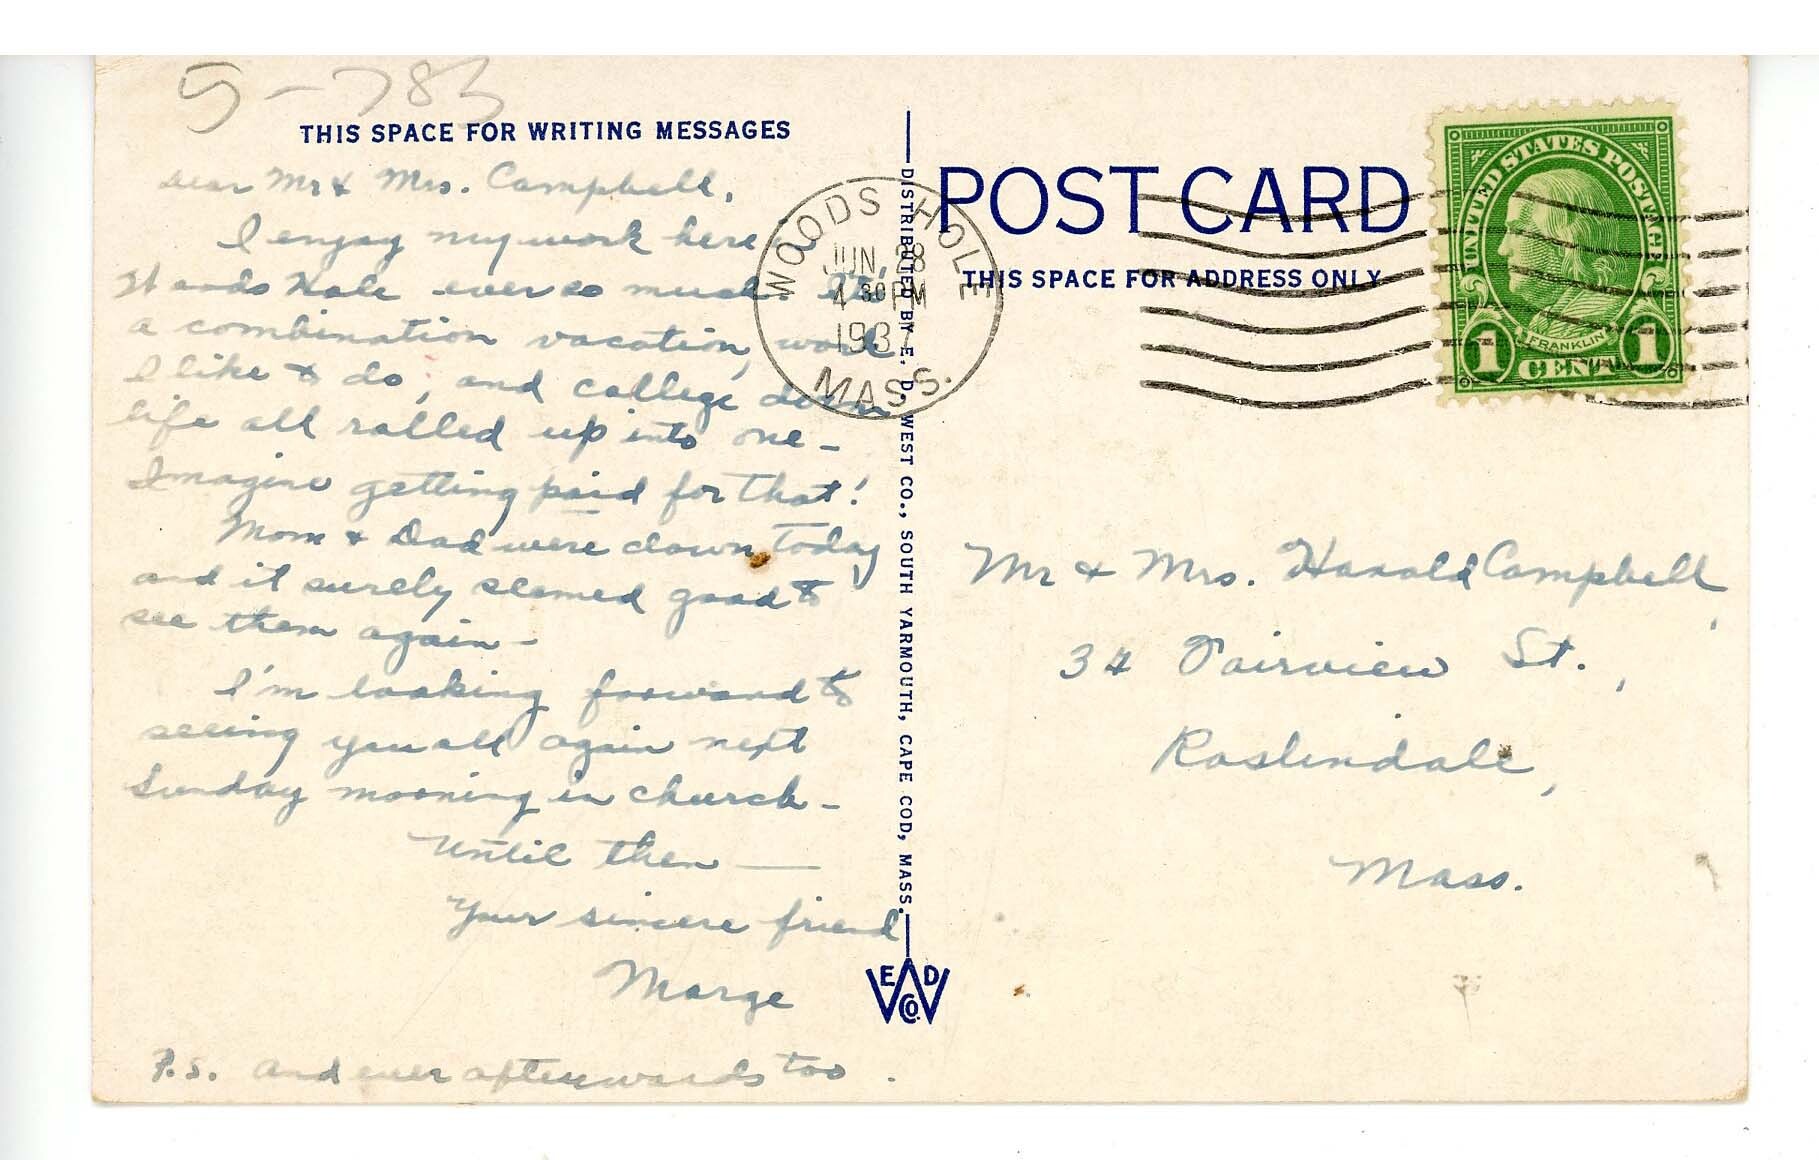 5-783
THIS SPACE FOR WRITING MESSAGES
Dear Mr & Mrs. Campbell,
I enjoy my work here in
Woods Hole ever so much. It's
a combination vacation, work
I like to do, and college dorm
life all rolled up into one -
Imagine getting paid for that!
Mom & Dad were down today
and it surely seemed good to
see them again -
I'm looking forward to
seeing you all again next
Sunday morning in church -
Until then —
Your sincere friend
Marge
P.S. and ever afterwards too.
DISTRIBUTED BY E. D. WEST CO., SOUTH YARMOUTH, CAPE COD, MASS.
E D
W Co. W
WOODS HOLE
JUN 28
4 30 PM
1937
MASS.
POST CARD
THIS SPACE FOR ADDRESS ONLY
UNITED STATES POSTAGE
FRANKLIN
1 CENT 1
Mr & Mrs. Harold Campbell,
34 Fairview St.,
Roslindale,
Mass.